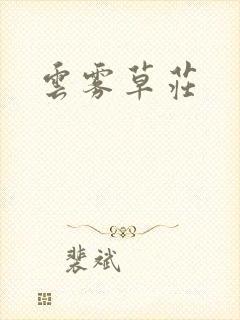 雲雾草莊
裴斌